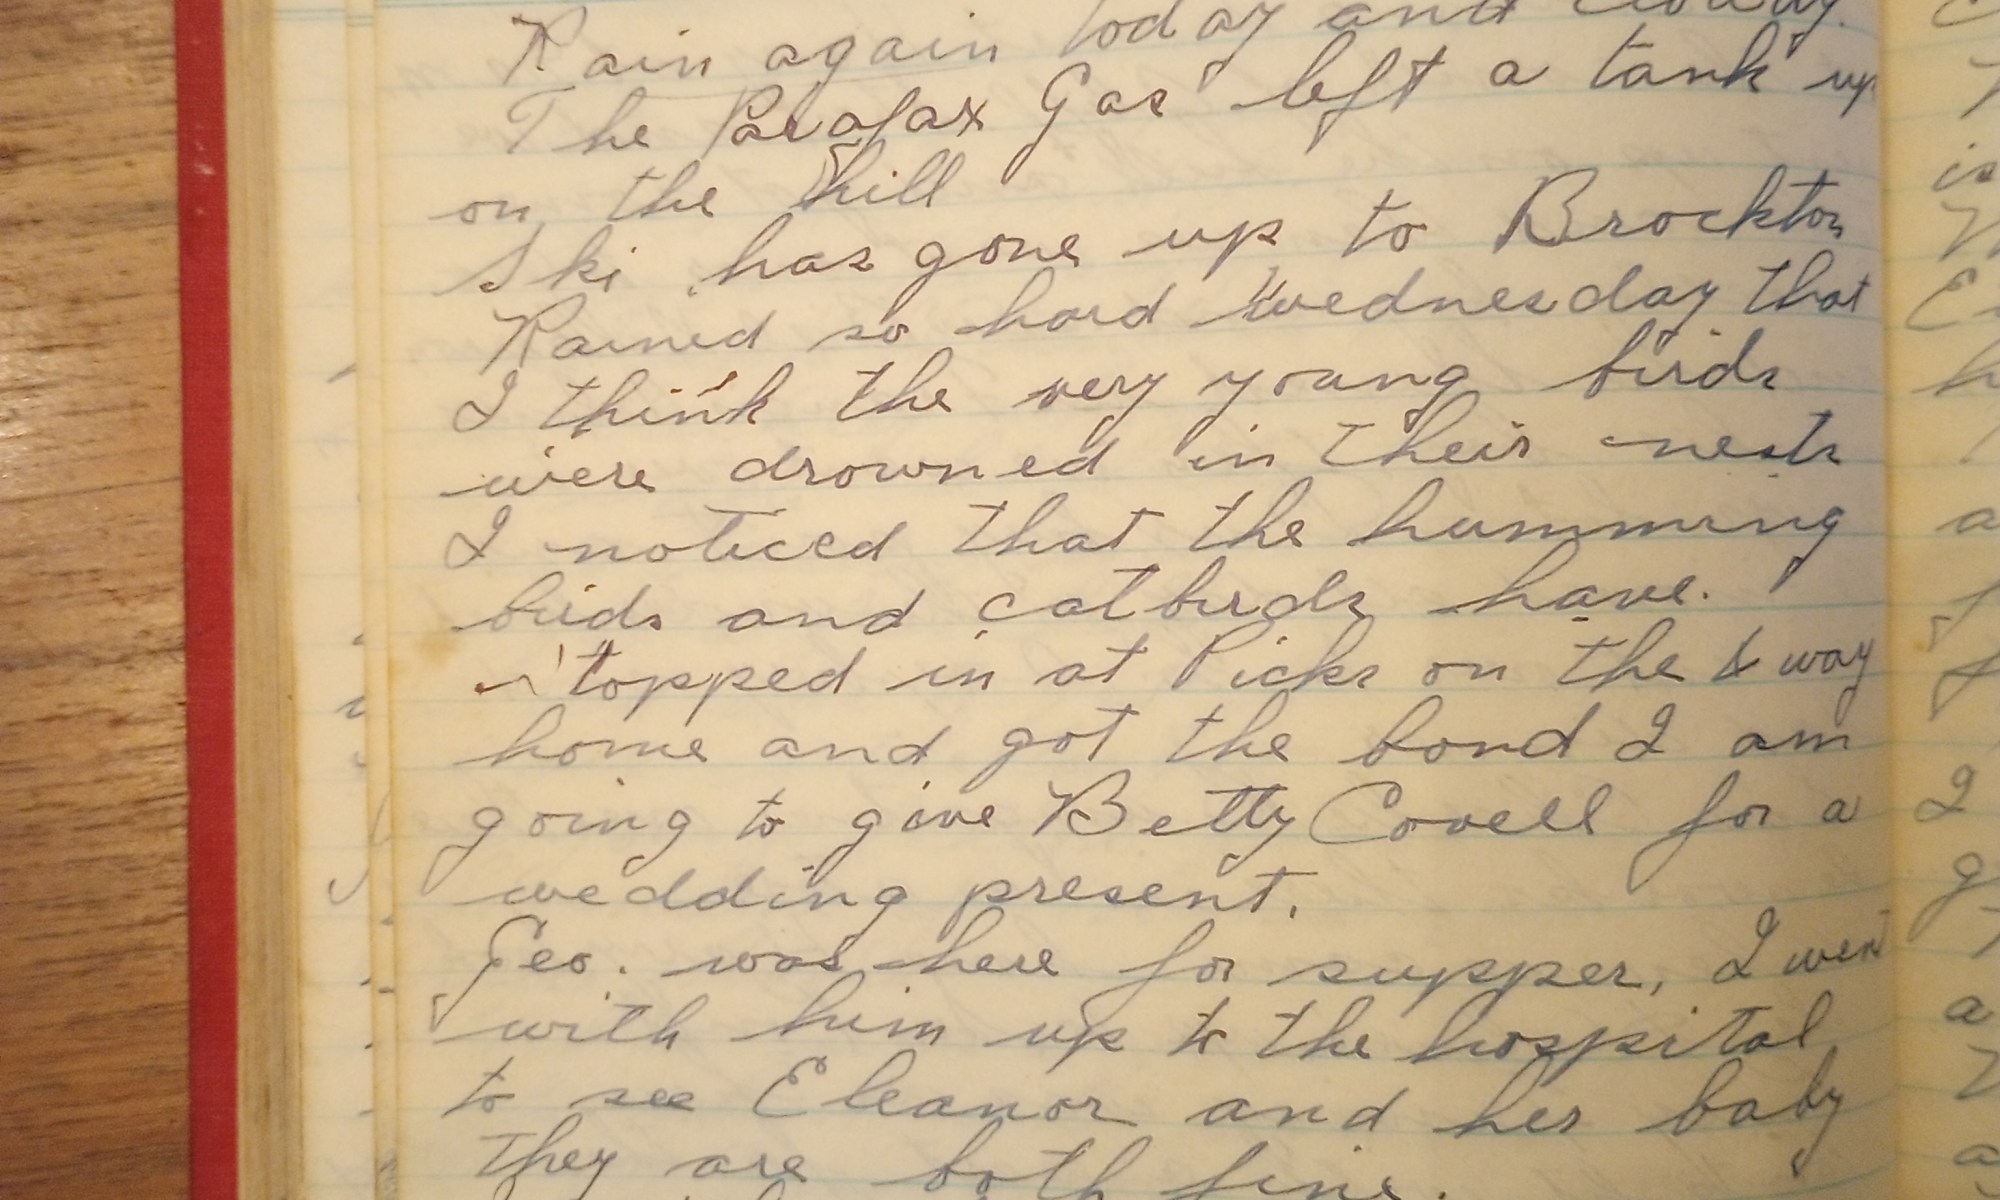 Rain again today and cloudy.
The Parafax Gas left a tank up
on the hill
Ski has gone up to Brockton
Rained so hard Wednesday that
I think the very young birds
were drowned in their nests
I noticed that the humming
birds and catbirds have.
Stopped in at Picks on the way
home and got the bond I am
going to give Betty Covell for a
wedding present.
Geo. was here for supper, I went
with him up to the hospital
to see Eleanor and her baby
They are both fine.